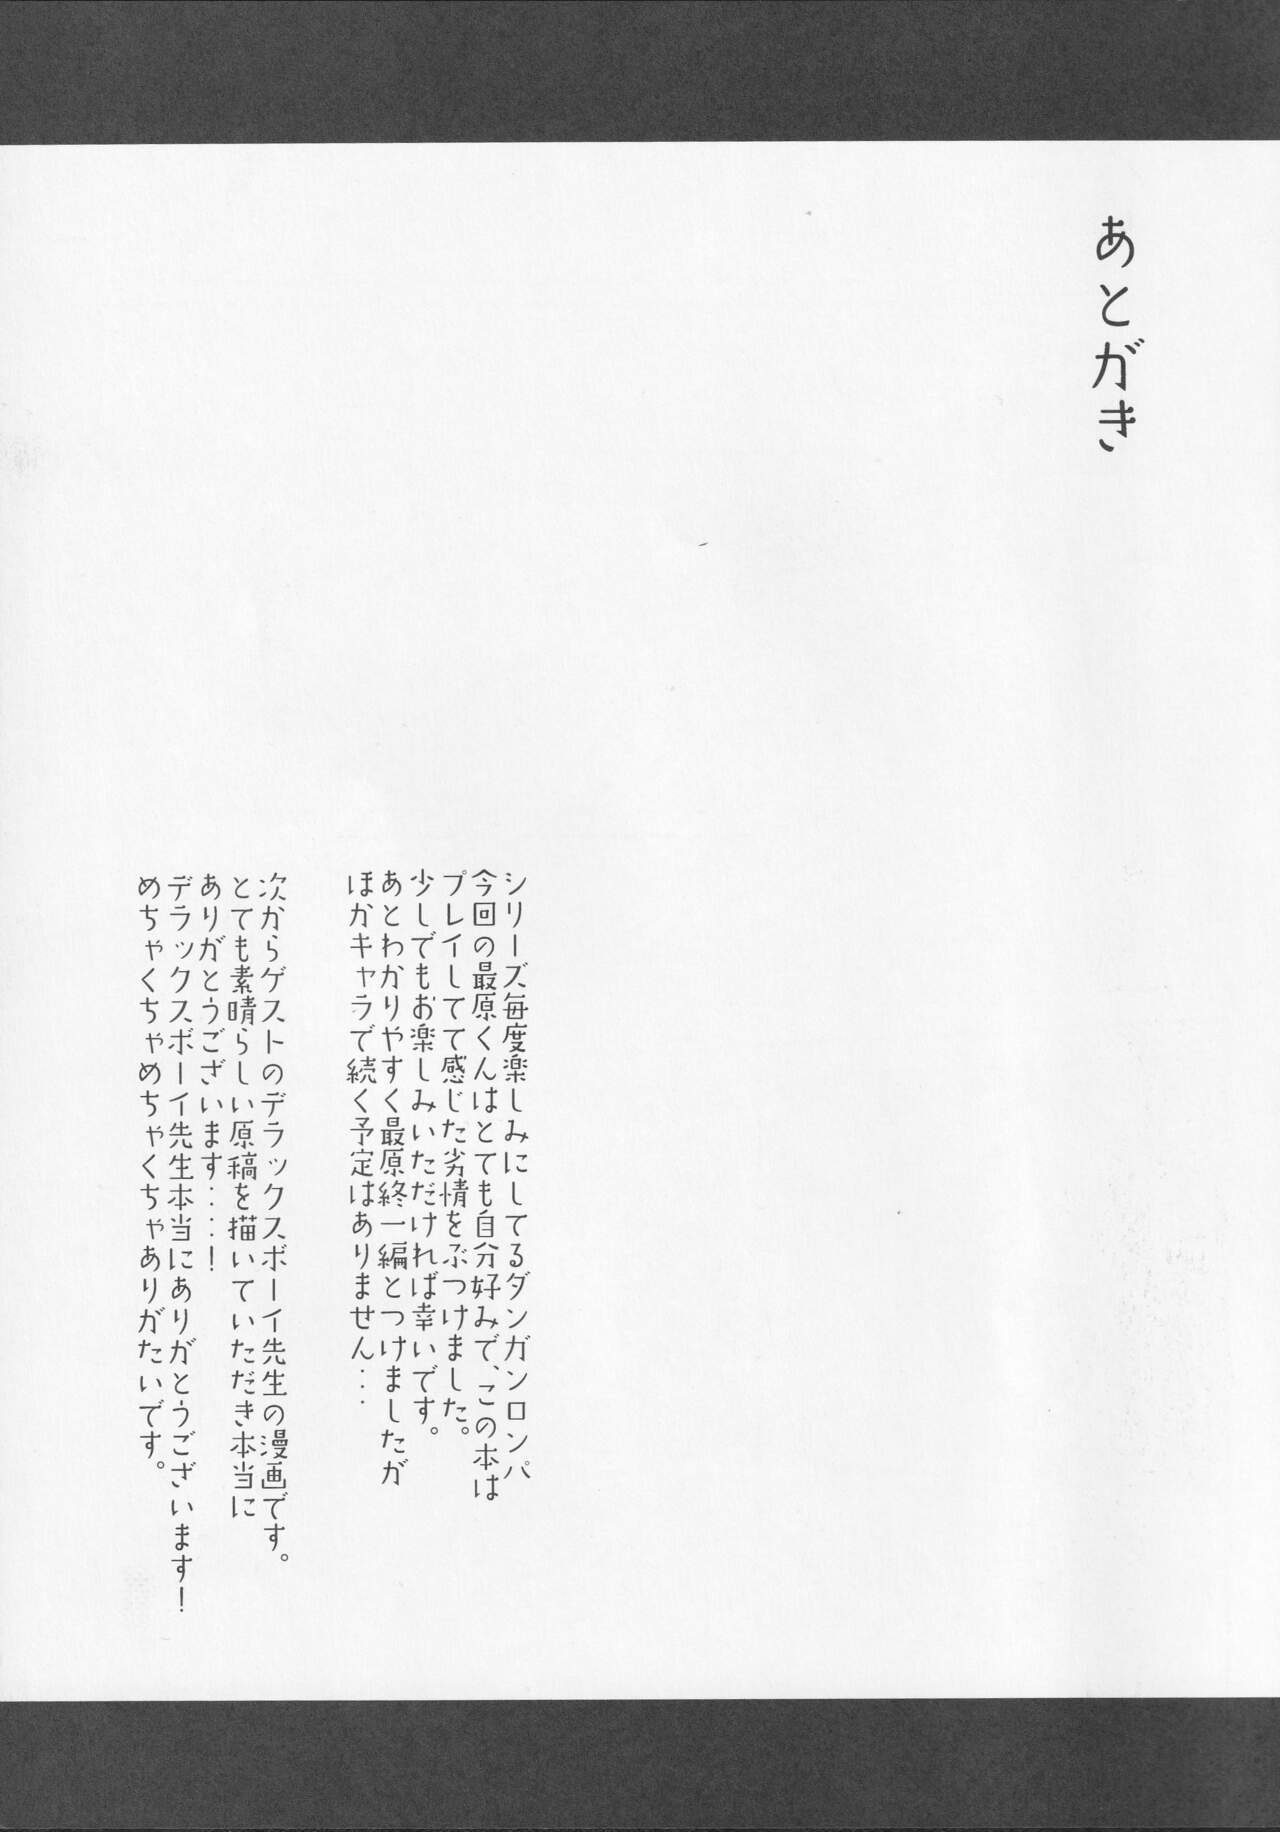 あとがき
シリーズ毎度楽しみにしてるダンガンロンパ
今回の最原くんはとても自分好みで、この本は
プレイしてて感じた劣情をぶつけました。
少しでもお楽しみいただければ幸いです。
あとわかりやすく最原終一編とつけましたが
ほかキャラで続く予定はありません…
次からゲストのデラックスボーイ先生の漫画です。
とても素晴らしい原稿を描いていただき本当に
ありがとうございます…！
デラックスボーイ先生本当にありがとうございます！
めちゃくちゃめちゃくちゃありがたいです。